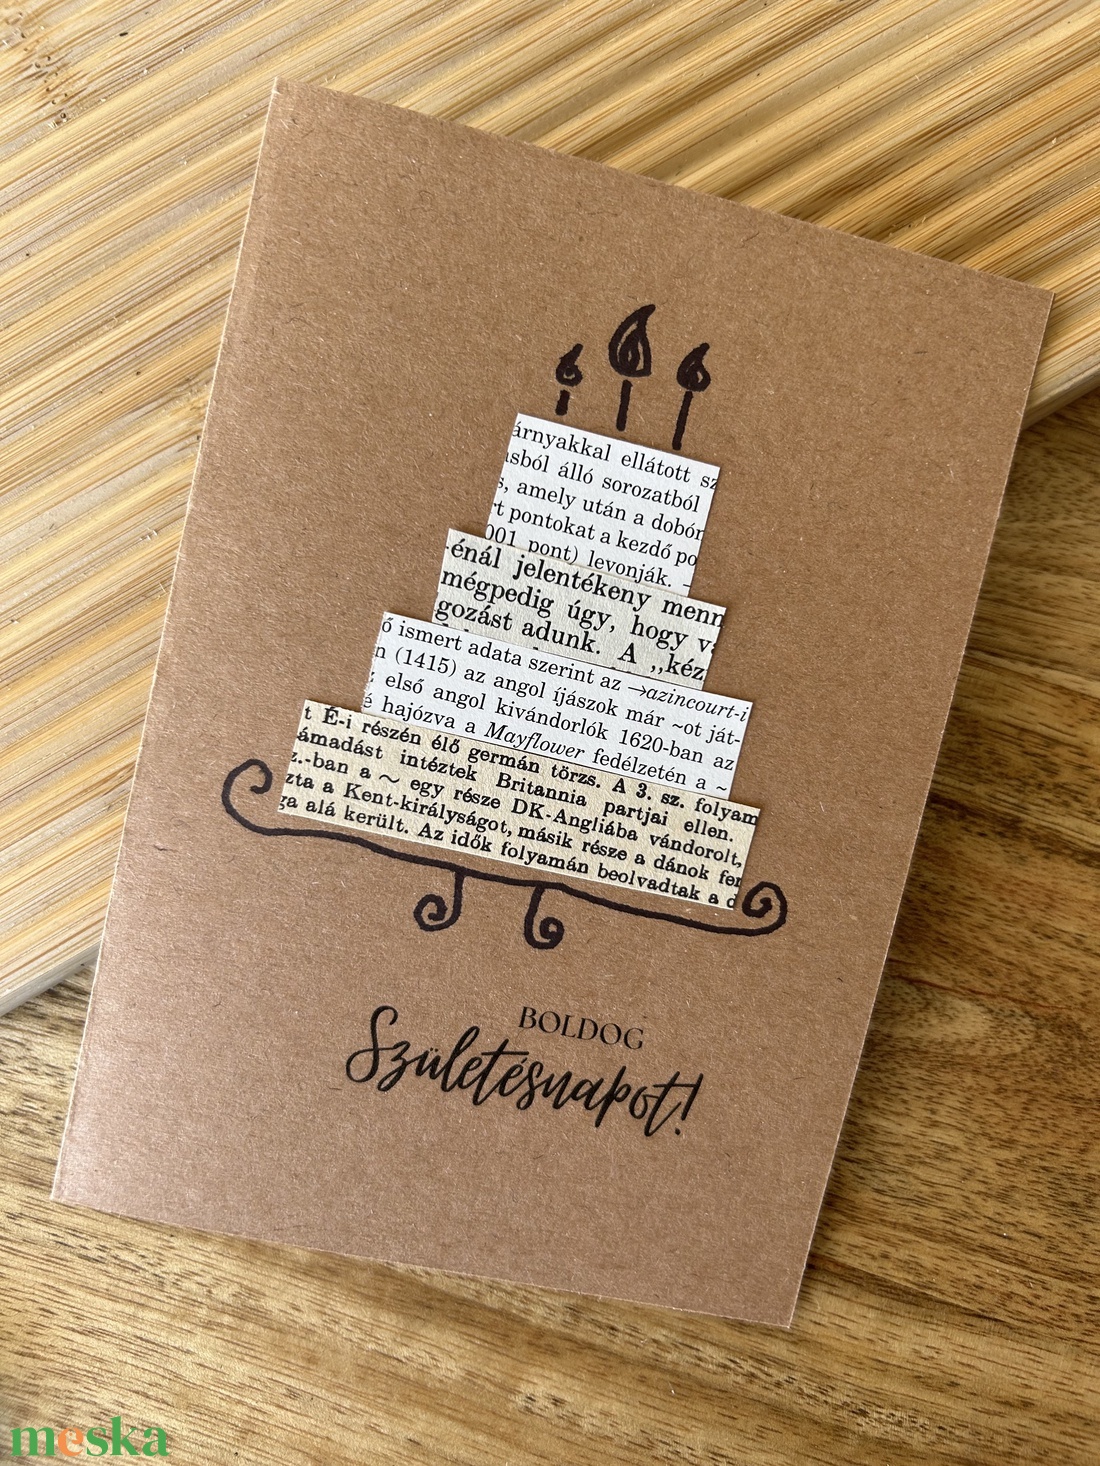 árnyakkal ellátott sz
ásból álló sorozatból
s, amely után a dobór
rt pontokat a kezdő po
001 pont) levonják.
énál jelentékeny menn
mégpedig úgy, hogy v
gozást adunk. A ,,kéz
ő ismert adata szerint az →azincourt-i
n (1415) az angol íjászok már ~ot ját-
első angol kivándorlók 1620-ban az
é hajózva a Mayflower fedélzetén a ~
t É-i részén élő germán törzs. A 3. sz. folyam
ámadást intéztek Britannia partjai ellen.
z.-ban a ~ egy része DK-Angliába vándorolt,
zta a Kent-királyságot, másik része a dánok fen
ga alá került. Az idők folyamán beolvadtak a d
BOLDOG
Születésnapot!
meska